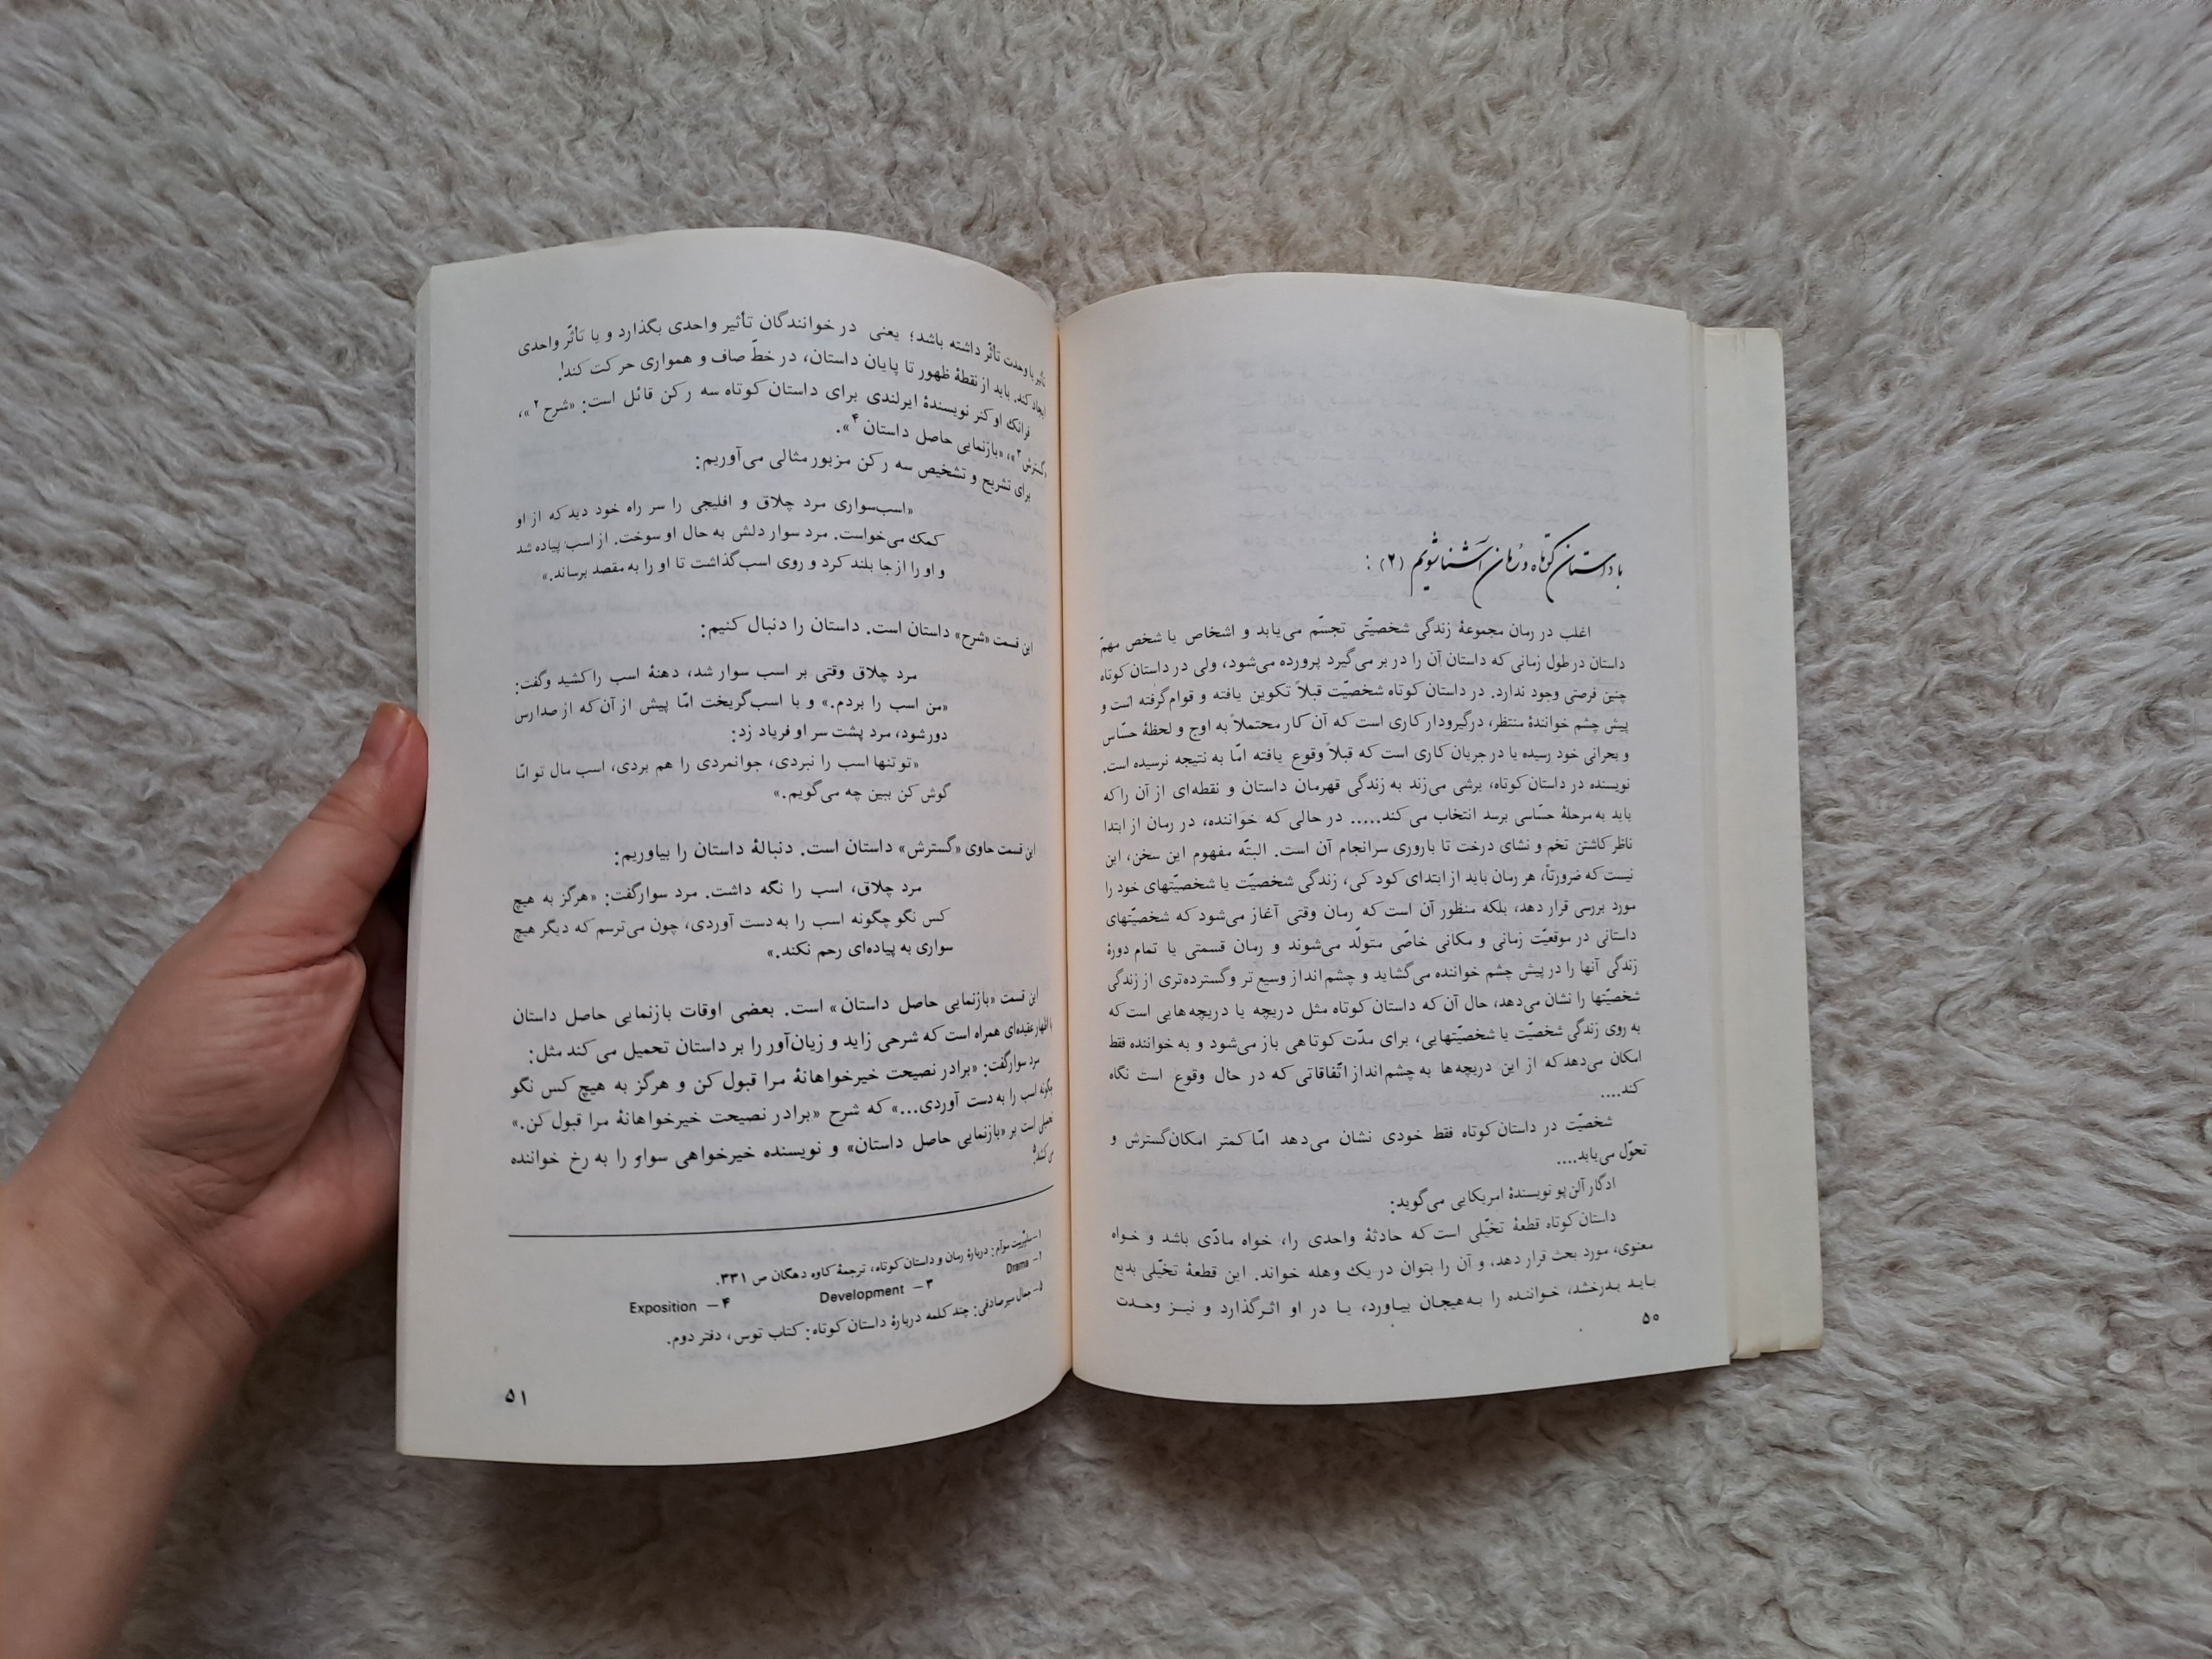 با داستان کوتاه و رمان آشنا شویم (۲) :
اغلب در رمان مجموعهٔ زندگی شخصیّتی تجسّم می‌یابد و اشخاص یا شخص مهمّ
داستان در طول زمانی که داستان آن را در بر می‌گیرد پرورده می‌شود، ولی در داستان کوتاه
چنین فرصتی وجود ندارد. در داستان کوتاه شخصیّت قبلاً تکوین یافته و قوام گرفته است و
پیش چشم خوانندهٔ منتظر، درگیرودار کاری است که آن کار محتملاً به اوج و لحظهٔ حسّاس
و بحرانی خود رسیده یا در جریان کاری است که قبلاً وقوع یافته امّا به نتیجه نرسیده است.
نویسنده در داستان کوتاه، برشی می‌زند به زندگی قهرمان داستان و نقطه‌ای از آن را که
باید به مرحلهٔ حسّاسی برسد انتخاب می‌کند..... در حالی که خواننده، در رمان از ابتدا
ناظر کاشتن تخم و نشای درخت تا باروری سرانجام آن است. البتّه مفهوم این سخن، این
نیست که ضرورتاً، هر رمان باید از ابتدای کودکی، زندگی شخصیّت یا شخصیّتهای خود را
مورد بررسی قرار دهد، بلکه منظور آن است که رمان وقتی آغاز می‌شود که شخصیّتهای
داستانی در موقعیّت زمانی و مکانی خاصّی متولّد می‌شوند و رمان قسمتی یا تمام دورهٔ
زندگی آنها را در پیش چشم خواننده می‌گشاید و چشم‌انداز وسیع‌تر و گسترده‌تری از زندگی
شخصیّتها را نشان می‌دهد، حال آن که داستان کوتاه مثل دریچه یا دریچه‌هایی است که
به روی زندگی شخصیّت یا شخصیّتهایی، برای مدّت کوتاهی باز می‌شود و به خواننده فقط
امکان می‌دهد که از این دریچه‌ها به چشم‌انداز اتّفاقاتی که در حال وقوع است نگاه
کند....
شخصیّت در داستان کوتاه فقط خودی نشان می‌دهد امّا کمتر امکان گسترش و
تحوّل می‌یابد....
ادگار آلن پو نویسندهٔ امریکایی می‌گوید:
داستان کوتاه قطعهٔ تخیّلی است که حادثهٔ واحدی را، خواه مادّی باشد و خواه
معنوی، مورد بحث قرار دهد، و آن را بتوان در یک وهله خواند. این قطعهٔ تخیّلی بدیع
باید بدرخشد، خواننده را به‌هیجان بیاورد، یا در او اثر گذارد و نیز وحدت
۵۰
تأثیر یا وحدت تأثّر داشته باشد؛ یعنی در خوانندگان تأثیر واحدی بگذارد و یا تأثّر واحدی
ایجاد کند. باید از نقطهٔ ظهور تا پایان داستان، در خطّ صاف و همواری حرکت کند۱
فرانک اوکنر نویسندهٔ ایرلندی برای داستان کوتاه سه رکن قائل است: «شرح۲»،
«گسترش۳»، «بازنمایی حاصل داستان۴».
برای تشریح و تشخیص سه رکن مزبور مثالی می‌آوریم:
«اسب‌سواری مرد چلاق و افلیجی را سر راه خود دید که از او
کمک می‌خواست. مرد سوار دلش به حال او سوخت. از اسب پیاده شد
و او را از جا بلند کرد و روی اسب گذاشت تا او را به مقصد برساند.»
این قسمت «شرح» داستان است. داستان را دنبال کنیم:
مرد چلاق وقتی بر اسب سوار شد، دهنهٔ اسب را کشید و گفت:
«من اسب را بردم.» و با اسب گریخت امّا پیش از آن که از صدارس
دور شود، مرد پشت سر او فریاد زد:
«تو تنها اسب را نبردی، جوانمردی را هم بردی، اسب مال تو امّا
گوش کن ببین چه می‌گویم.»
این قسمت حاوی «گسترش» داستان است. دنبالهٔ داستان را بیاوریم:
مرد چلاق، اسب را نگه داشت. مرد سوار گفت: «هرگز به هیچ
کس نگو چگونه اسب را به دست آوردی، چون می‌ترسم که دیگر هیچ
سواری به پیاده‌ای رحم نکند.»
این قسمت «بازنمایی حاصل داستان» است. بعضی اوقات بازنمایی حاصل داستان
با اظهار عقیده‌ای همراه است که شرحی زاید و زیان‌آور را بر داستان تحمیل می‌کند مثل:
مرد سوار گفت: «برادر نصیحت خیرخواهانهٔ مرا قبول کن و هرگز به هیچ کس نگو
چگونه اسب را به دست آوردی...» که شرح «برادر نصیحت خیرخواهانهٔ مرا قبول کن.»
تحمیلی است بر «بازنمایی حاصل داستان» و نویسنده خیرخواهی سوار را به رخ خواننده
می‌کشد۵.
۱- سامرست موآم: دربارهٔ رمان و داستان کوتاه، ترجمهٔ کاوه دهگان ص ۳۳۱.
۲- Drama ۳- Development ۴- Exposition
۵- جمال میرصادقی: چند کلمه دربارهٔ داستان کوتاه: کتاب توس، دفتر دوم.
۵۱